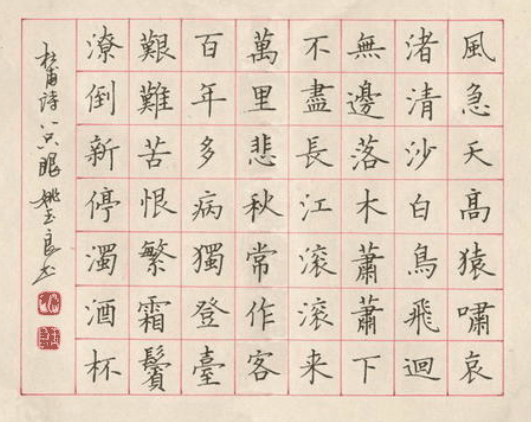 風急天高猿嘯哀
渚清沙白鳥飛迴
無邊落木蕭蕭下
不盡長江滚滚来
萬里悲秋常作客
百年多病獨登臺
艱難苦恨繁霜鬢
潦倒新停濁酒杯
杜甫詩 眼 姚玉良书